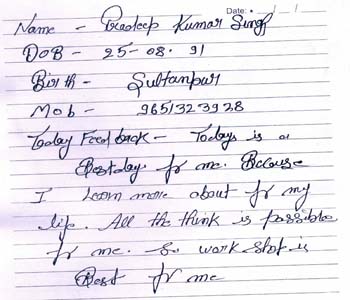 Date: / /
Name - Pradeep Kumar Singh
DOB - 25-08-91
Birth - Sultanpur
Mob - 9651323928
Today Feedback - Todays is a
Best day for me. Because
I Learn more about for my
life. All the think is possible
for me. So work shot is
Best for me